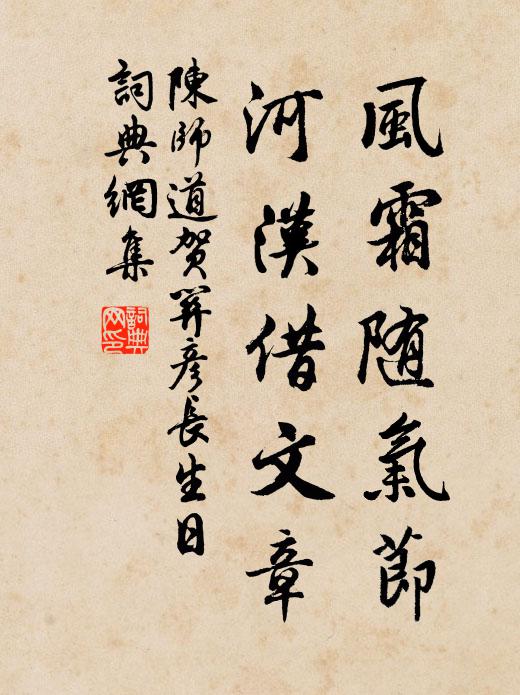 風霜随氣節
河漢借文章
陳師道賀關彦長生日
詞典網集
詞典
网印